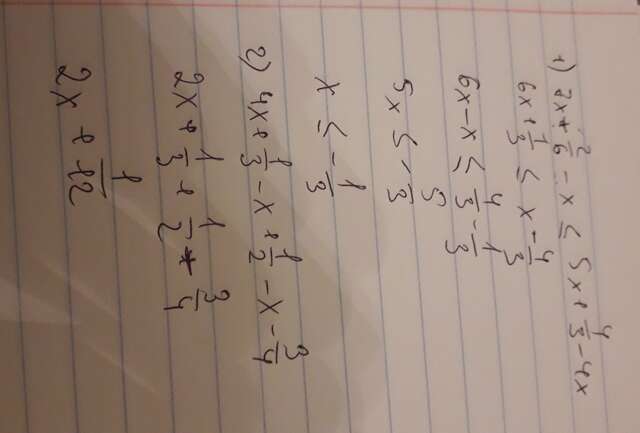 1) 7x + 2/6 - x ≤ 5x + 4/3 - 4x
6x + 1/3 ≤ x - 4/3
6x - x ≤ 4/3 - 1/3
5x ≤ - 5/3
x ≤ - 1/3
2) 4x + 1/3 - x + 1/2 - x - 3/4
2x + 1/3 + 1/2 * 3/4
2x + 1/12